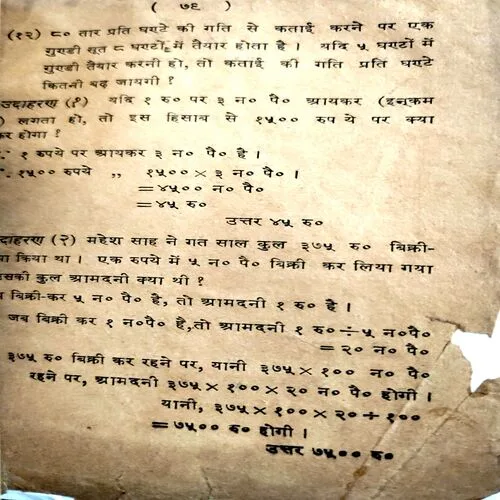 ( ७९ )
(१२) ८० तार प्रति घण्टे की गति से कताई करने पर एक
गुण्डी सूत ८ घण्टों में तैयार होता है । यदि ५ घण्टों में
गुण्डी तैयार करनी हो, तो कताई की गति प्रति घण्टे
कितनी बढ़ जायगी ?
उदाहरण (१) यदि १ रु० पर ३ न० पै० आयकर (इनकम
) लगता हो, तो इस हिसाब से १५०० रुपये पर क्या
कर होगा ?
∵ १ रुपये पर आयकर ३ न० पै० है ।
∴ १५०० रुपये ,, १५०० × ३ न० पै० ।
= ४५०० न० पै०
= ४५ रु०
उत्तर ४५ रु०
दाहरण (२) महेश साह ने गत साल कुल ३७५ रु० बिक्री-
किया था । एक रुपये में ५ न० पै० बिक्री कर लिया गया
उसकी कुल आमदनी क्या थी ?
बिक्री-कर ५ न० पै० है, तो आमदनी १ रु० है ।
जब बिक्री कर १ न०पै० है,तो आमदनी १ रु० ÷ ५ न०पै०
= २० न० पै०
३७५ रु० बिक्री कर रहने पर, यानी ३७५ × १०० न० पै०
रहने पर, आमदनी ३७५ × १०० × २० न० पै० होगी ।
यानी, ३७५ × १०० × २० ÷ १००
= ७५०० रु० होगी ।
उत्तर ७५०० रु०